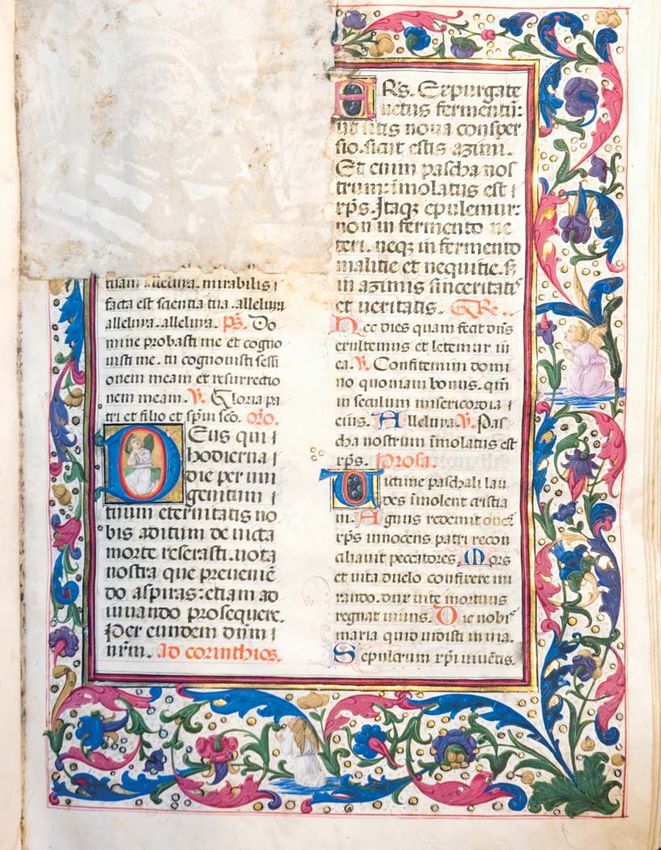 tuam alleluya. mirabilis
facta est scientia tua. alleluya
alleluya. alleluya. ps̄. Do
mine probasti me et cogno
uisti me. tu cognouisti sessi
onem meam et resurrectio
nem meam. V. Gloria pa
tri et filio et sp̄ui sc̄o. or̄o.
DEus qui
hodierna
die per uni
genitum
tuum eternitatis no
bis aditum de uicta
morte reserasti. uota
nostra que preueniē
do aspiras: etiam ad
iuuando prosequere.
Per eundem dn̄m
nr̄m. Ad corinthios.
FRs̄. Expurgate
uetus fermentū:
ut sitis noua consper
sio. sicut estis azimi.
Et enim pascha nos
trum: īmolatus est
xp̄s. Itaqꝫ epulemur:
non in fermento ue
teri. neqꝫ in fermento
malitie et nequitie. sꝫ
in azimis sinceritatis
et ueritatis. GR.
Hec dies quam fecit dn̄s
exultemus et letemur in
ea. V. Confitemini domi
no quoniam bonus. qm̄
in seculum misericordia
eius. Alleluia. V. Pas
cha nostrum īmolatus est
xp̄s. Prosa.
Uictime paschali lau
des īmolent cristia
ni. Agnus redemit oues
xp̄s innocens patri recon
ciliauit peccatores. Mors
et uita duelo conflixere mi
rando. dux uite mortuus
regnat uiuus. Dic nobis
maria quid uidisti in uia.
Sepulcrum xp̄i uiuētis.